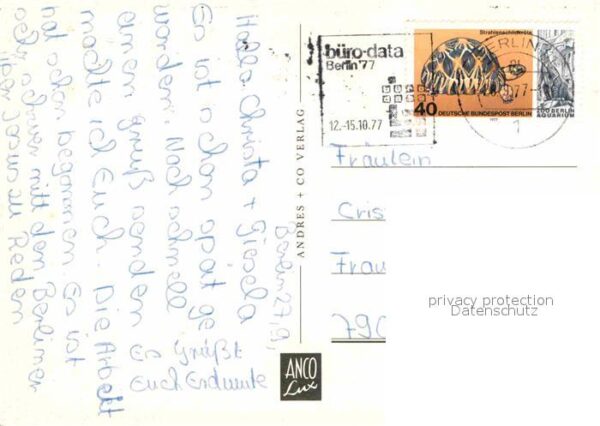 Berlin 27.9.
Hallo Christa + Gisela
Es ist schon spät ge
worden. Noch schnell
einen Gruß senden
möchte ich Euch. Die Arbeit
hat schon begonnen. Es ist
sehr schwer mit den Berliner
Es Grüßt
Euch Erdmute
ANDRES + CO VERLAG
ANCO
Lux
büro-data
Berlin '77
12.-15.10.77
Strahlenschildkröte
40
DEUTSCHE BUNDESPOST BERLIN
1977
ZOO BERLIN
AQUARIUM
BERLIN
1
Fräulein
Cris
Frau
790
privacy protection
Datenschutz